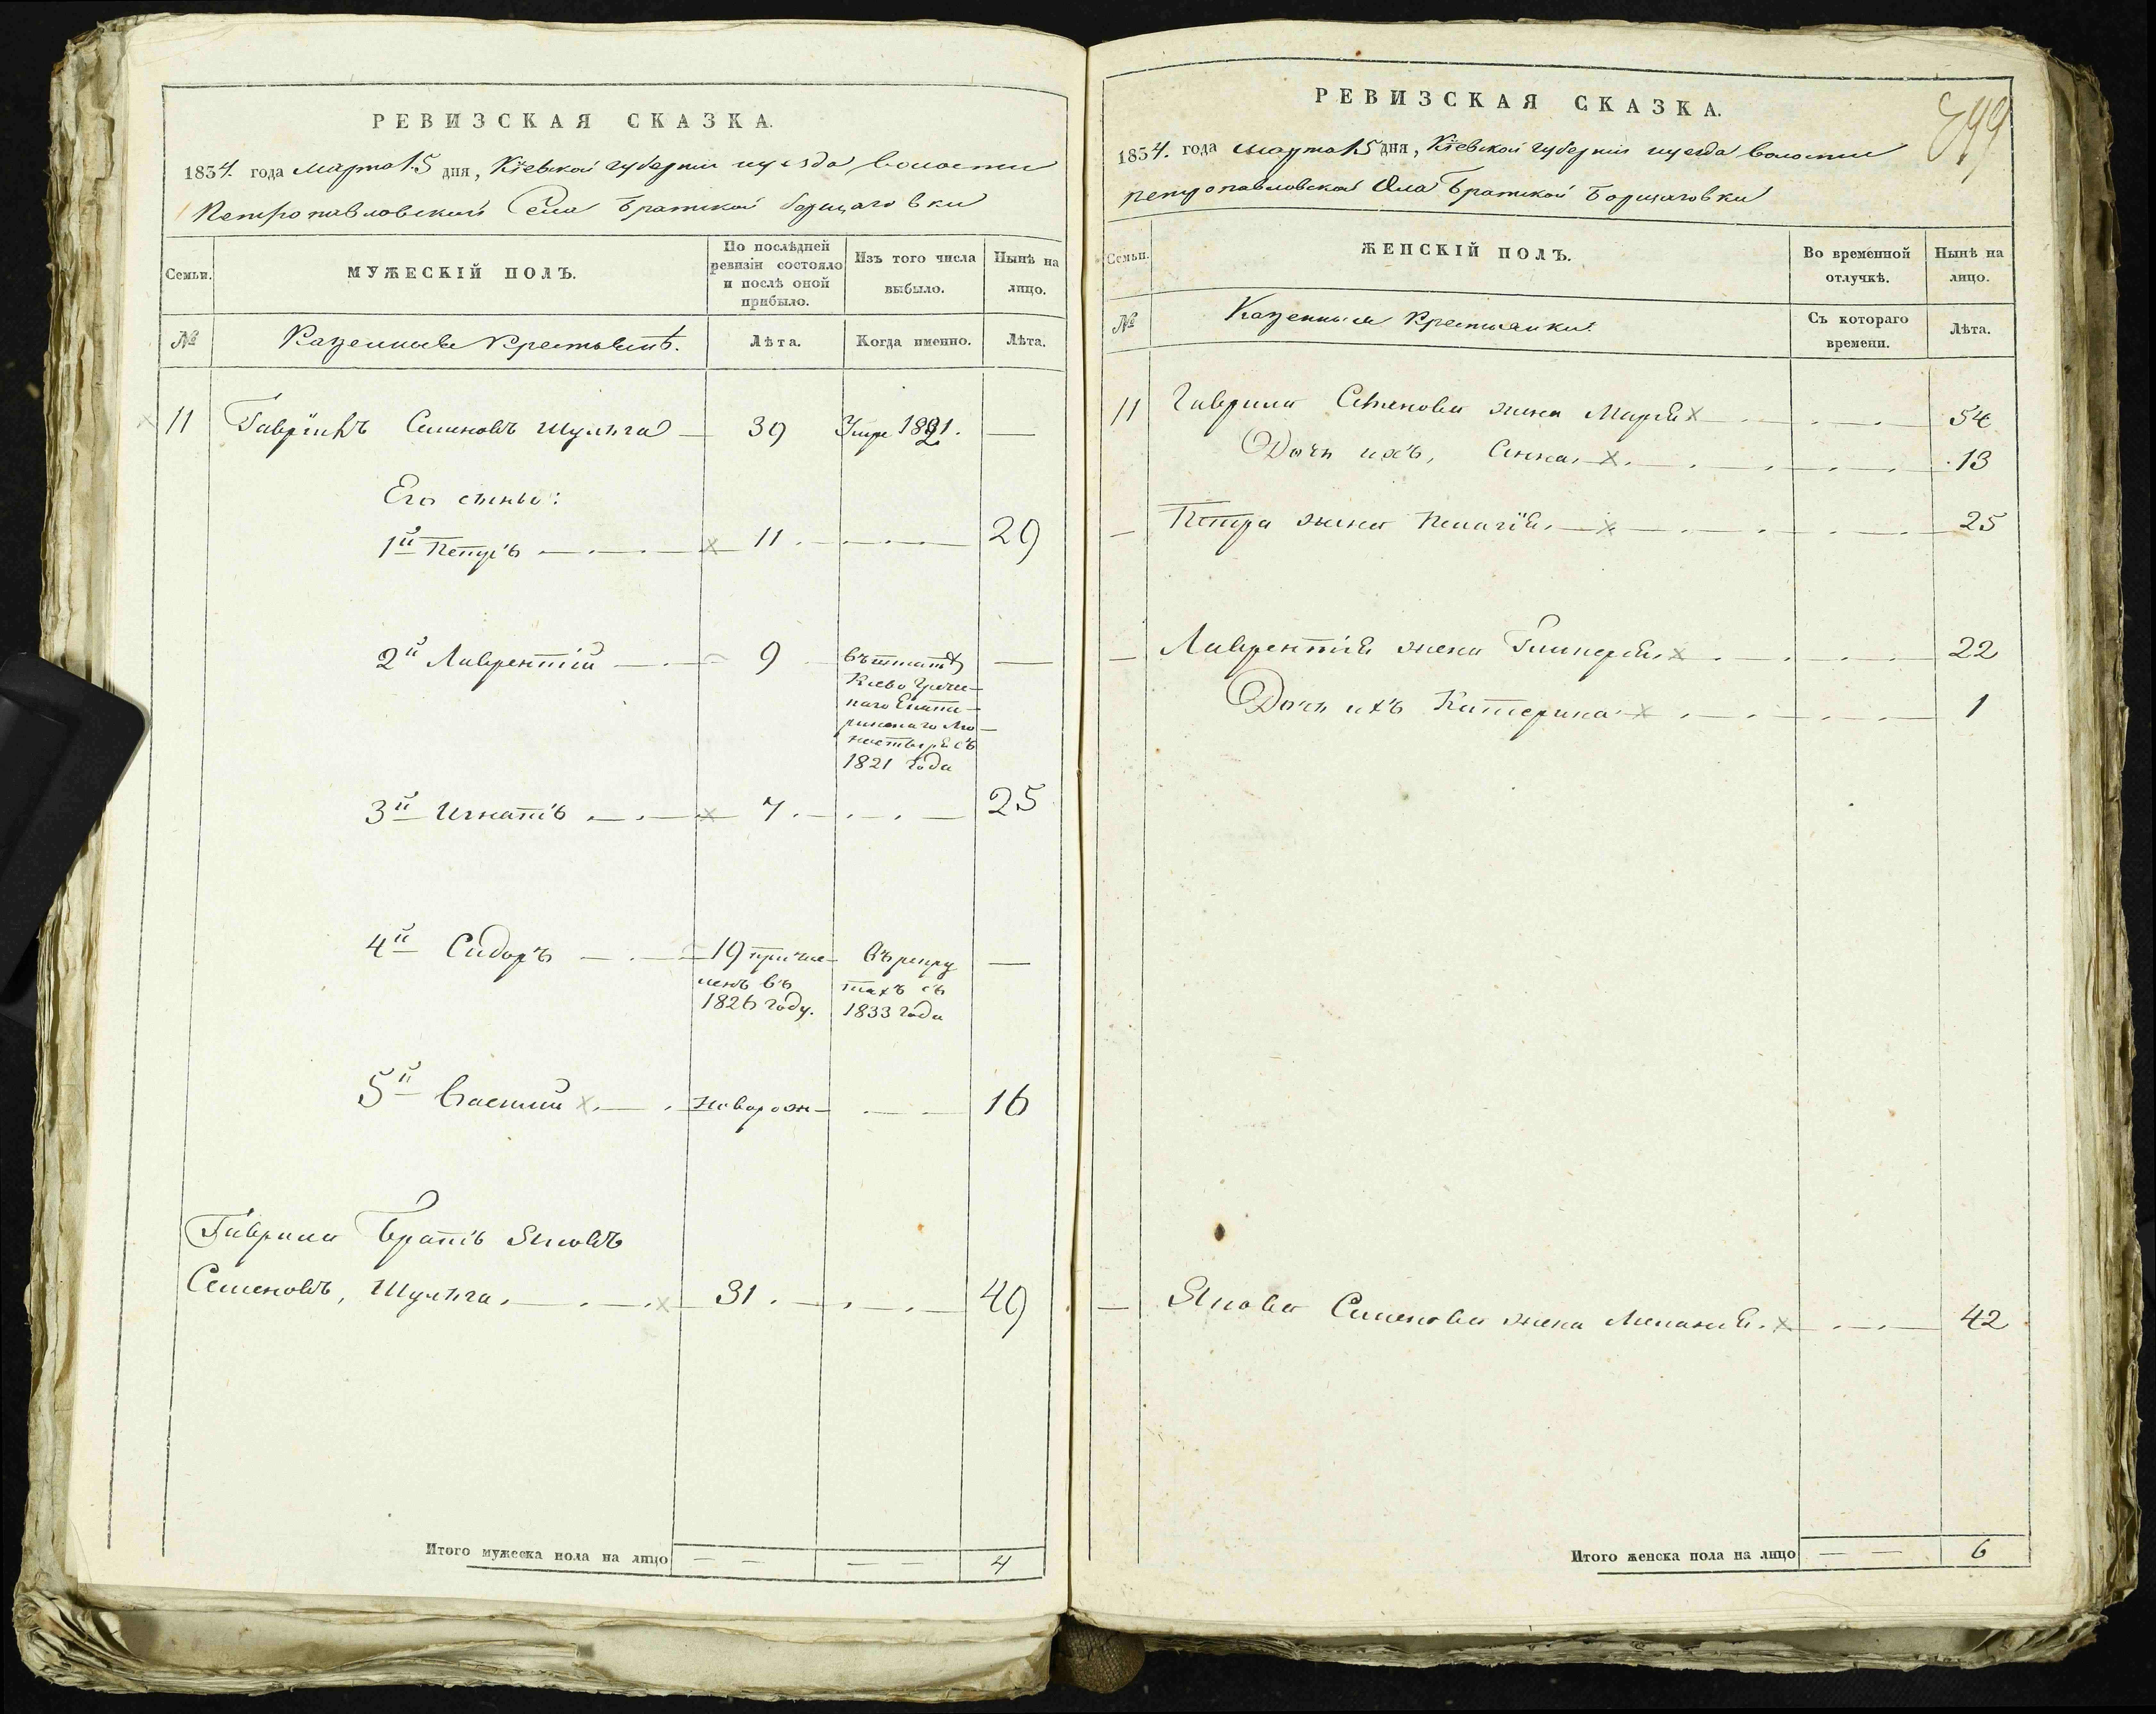 РЕВИЗСКАЯ СКАЗКА.
1834. года Марта 15 дня, Кіевской губерніи и уезда волости
Петропавловской Села Братской борщаговки
Семьи.
МУЖЕСКІЙ ПОЛЪ.
По послѣдней ревизіи состояло и послѣ оной прибыло.
Изъ того числа выбыло.
Нынѣ на лицо.
№
Казенные Крестьянѣ.
Лѣта.
Когда именно.
Лѣта.
11 Гавріилъ Семеновъ Шульга 39 Умре 1821.
Его сыны:
1й Петръ 11 29
2й Лаврентій 9 въ штатѣ
Киево Грече-
каго Екате-
рининаго Мо-
настыря съ
1821 года
3й Игнатъ 7 25
4й Сидоръ 19 причис- Въ рекру
ленъ въ тахъ съ
1826 году. 1833 года
5й Василий Новорож- 16
Гаврила Братъ Яковъ
Семеновъ, Шульга 31 49
Итого мужеска пола на лицо 4
РЕВИЗСКАЯ СКАЗКА.
1834. года Марта 15 дня, Кіевской губерніи и уезда волости
петропавловской Села Братской Борщаговки
Семьи.
ЖЕНСКІЙ ПОЛЪ.
Во временной отлучкѣ.
Нынѣ на лицо.
№
Казенныя Крестьянки
Съ котораго времени.
Лѣта.
11 Гаврила Семенова жена Марья 54
Дочь ихъ, Анна 13
Петра жена Пелагія 25
Лаврентія жена Гликерья 22
Дочь ихъ Катерина 1
Якова Семенова жена Меланья 42
Итого женска пола на лицо 6